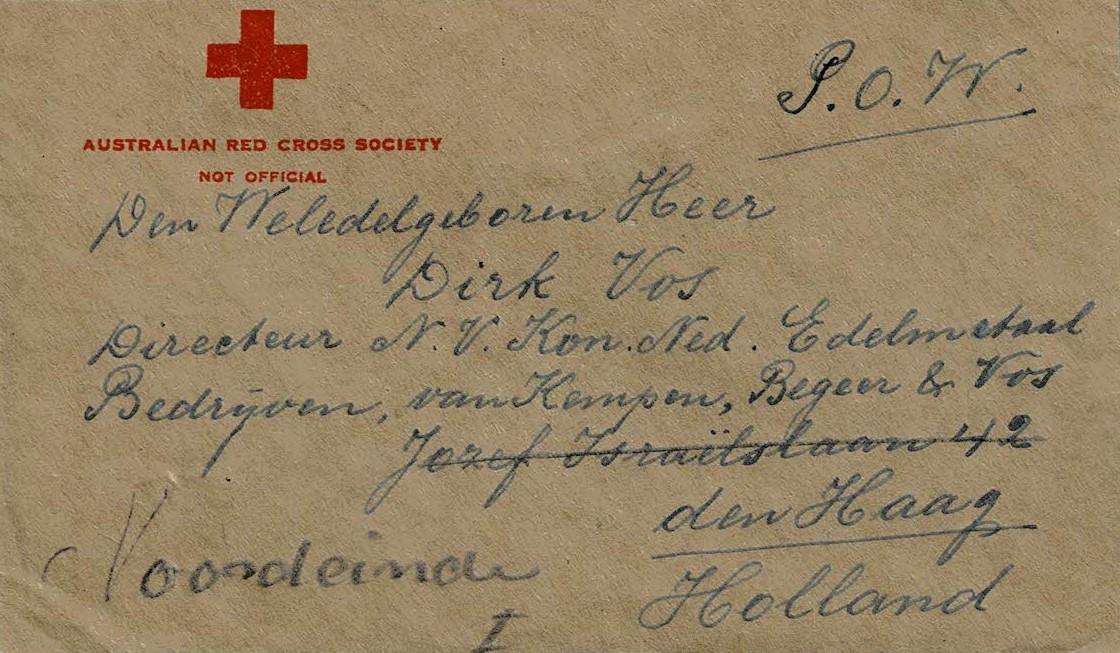 AUSTRALIAN RED CROSS SOCIETY
NOT OFFICIAL
P. O. W.
Den Weledelgeboren Heer
Dirk Vos
Directeur N. V. Kon. Ned. Edelmetaal
Bedrijven, van Kempen, Begeer & Vos
Jozef Israëlslaan 42
den Haag
Holland
Noordeinde
I